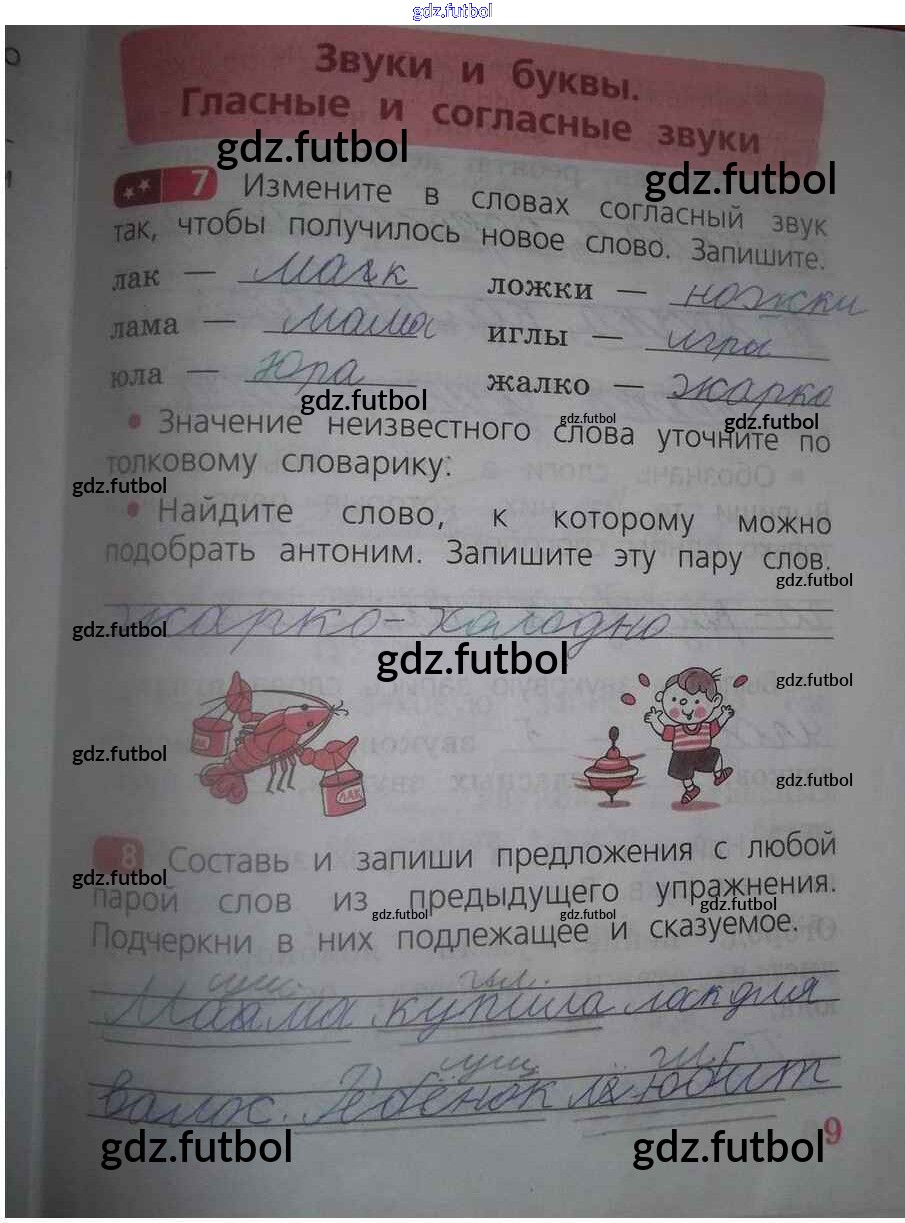 gdz.futbol
Звуки и буквы.
Гласные и согласные звуки
gdz.futbol
gdz.futbol
7 Измените в словах согласный звук
так, чтобы получилось новое слово. Запишите.
лак — мак ложки — ножки
лама — мама иглы — игры
юла — Юра жалко — жарко
gdz.futbol
gdz.futbol
gdz.futbol
• Значение неизвестного слова уточните по
толковому словарику:
gdz.futbol
• Найдите слово, к которому можно
подобрать антоним. Запишите эту пару слов.
gdz.futbol
жарко - холодно
gdz.futbol
gdz.futbol
gdz.futbol
gdz.futbol
gdz.futbol
ЛАК
8 Составь и запиши предложения с любой
парой слов из предыдущего упражнения.
Подчеркни в них подлежащее и сказуемое.
gdz.futbol
gdz.futbol
gdz.futbol
gdz.futbol
сущ. гл.
Мама купила лак для
сущ гл.
волос. Ребёнок любит
gdz.futbol
gdz.futbol
9